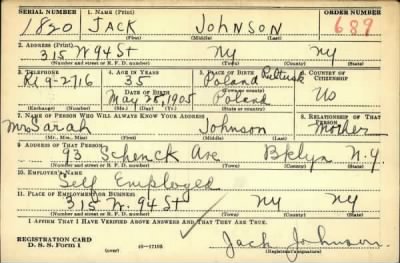 SERIAL NUMBER 1. NAME (Print) ORDER NUMBER
1820 JACK JOHNSON 689
(First) (Middle) (Last)
2. ADDRESS (Print)
315 W 94 St NY NY
(Number and street or R. F. D. number) (Town) (County) (State)
3. TELEPHONE 4. AGE IN YEARS 5. PLACE OF BIRTH 6. COUNTRY OF CITIZENSHIP
RI 9-2716 35 Poland Pultusk US
DATE OF BIRTH
May 25, 1905 Poland
(Exchange) (Number) (Mo.) (Day) (Yr.) (State or country)
7. NAME OF PERSON WHO WILL ALWAYS KNOW YOUR ADDRESS 8. RELATIONSHIP OF THAT PERSON
Mrs Sarah Johnson Mother
(Mr., Mrs., Miss) (First) (Middle) (Last)
9. ADDRESS OF THAT PERSON
93 Schenck Ave Bklyn N.Y.
(Number and street or R. F. D. number) (Town) (County) (State)
10. EMPLOYER'S NAME
Self Employed
11. PLACE OF EMPLOYMENT OR BUSINESS
315 W. 94 St NY NY
(Number and street or R. F. D. number) (Town) (County) (State)
I AFFIRM THAT I HAVE VERIFIED ABOVE ANSWERS AND THAT THEY ARE TRUE.
REGISTRATION CARD
D. S. S. Form 1 16-17105 Jack Johnson
(Registrant's signature)